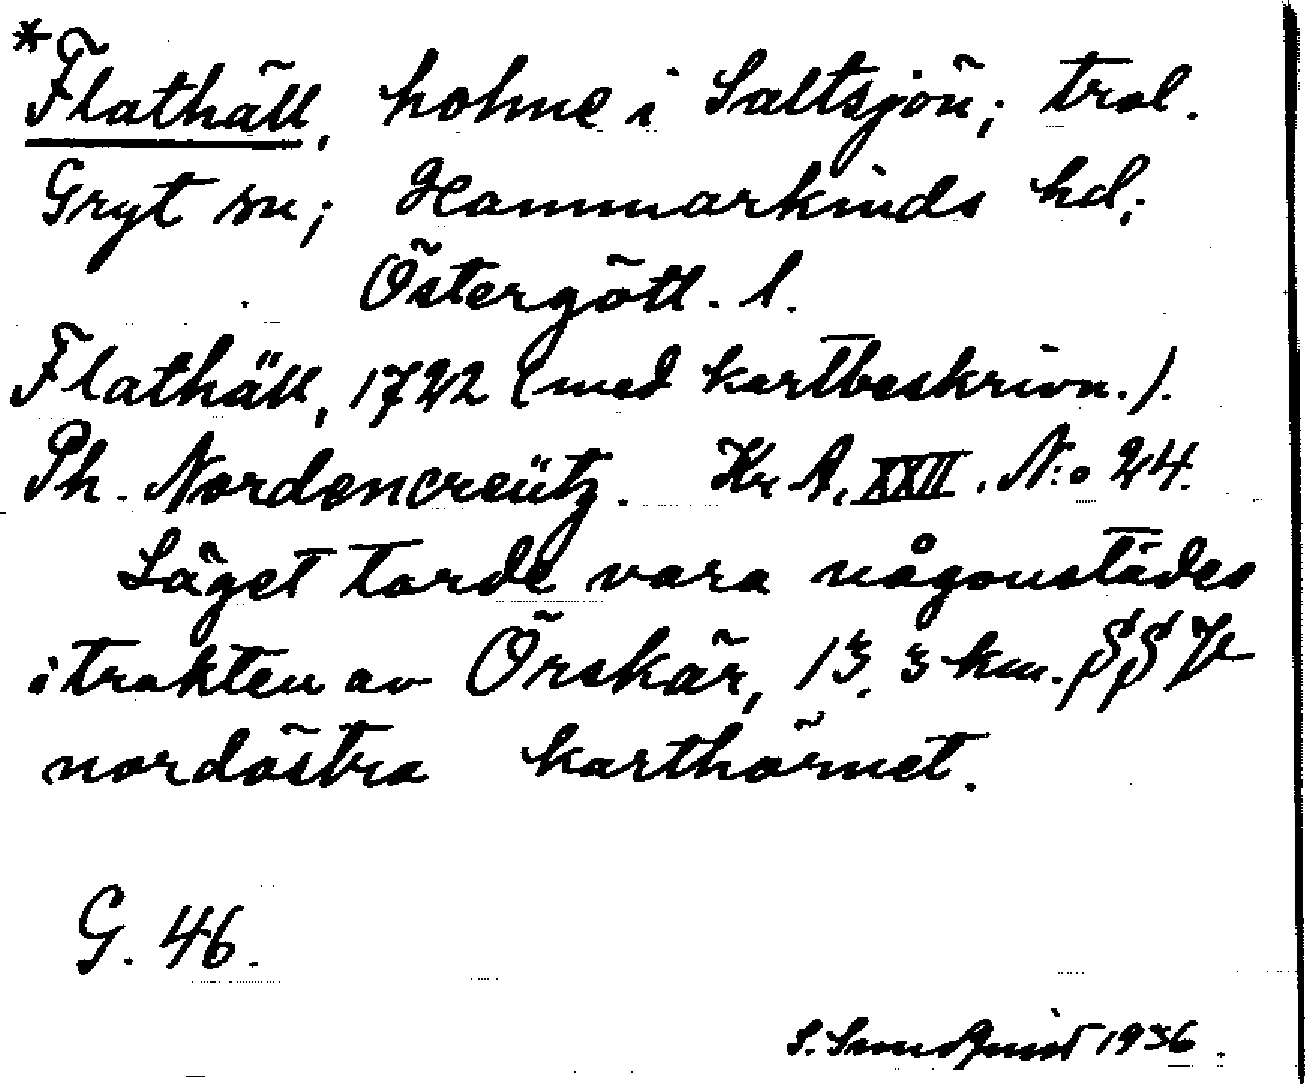 *Flathäll, holme i Saltsjön; trol.
Gryt sn; Hammarkinds hd;
Östergötl. l.
Flathäll, 1722 (med kartbeskrivn.).
Ph. Nordencreütz. Kr. A. XXII. N:o 24.
Läget torde vara någonstädes
i trakten av Örskär, 13,3 km. SSV
nordöstra karthörnet.
G. 46.
S. 1936.